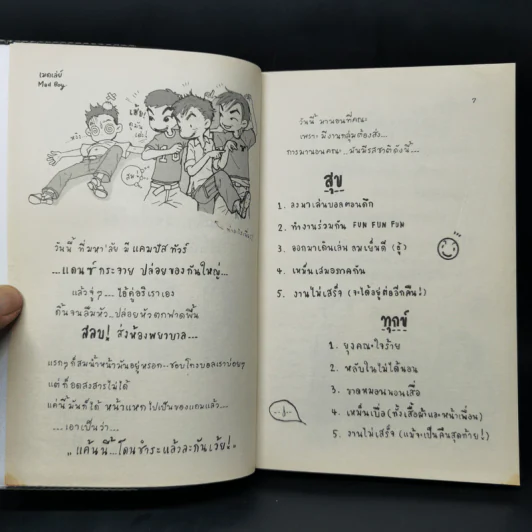 เมดเลย์
Mad Boy
เฮ้ย!
วันนี้ ที่มหา'ลัย มี แคมปัส ทัวร์
....แดนซ์กระจาย ปล่อยของกันใหญ่....
แล้วจู่ๆ.... ไอ้คู่อริเราเอง
ดิ้นจนลืมหัว...ปล่อยหัวตกฟาดพื้น
สลบ! ส่งห้องพยาบาล....
แรกๆ ก็สมน้ำหน้ามันอยู่หรอก...ชอบโกงบอลเราบ่อยๆ
แต่ก็อดสงสารไม่ได้
แค่นี้มันก็ได้ หน้าแหกไปเป็นของแถมแล้ว....
....เอาเป็นว่า....
"แค้นนี้...โดนชำระแล้วล่ะกันเว้ย!"
7
วันนี้ มานอนที่คณะ
เพราะ มีงานกลุ่มต้องส่ง...
การมานอนคณะ...มันมีรสชาติดังนี้....
สุข
1. ลงมาเล่นบอลตอนดึก
2. ทำงานร่วมกัน FUN FUN FUN
3. ออกมาเดินเล่น ลมเย็นดี (ฮู้)
4. เหม็นเสมอภาคกัน
5. งานไม่เสร็จ (จะได้อยู่ต่ออีกคืน!)
ทุกข์
1. ยุงคณะใจร้าย
2. หลับในไม่ได้นอน
3. ขาดหมอนนอนเสื่อ
4. เหม็นเบื่อ (ทั้งเสื้อผ้าและหน้าเพื่อน)
5. งานไม่เสร็จ (แม้จะเป็นคืนสุดท้าย!)